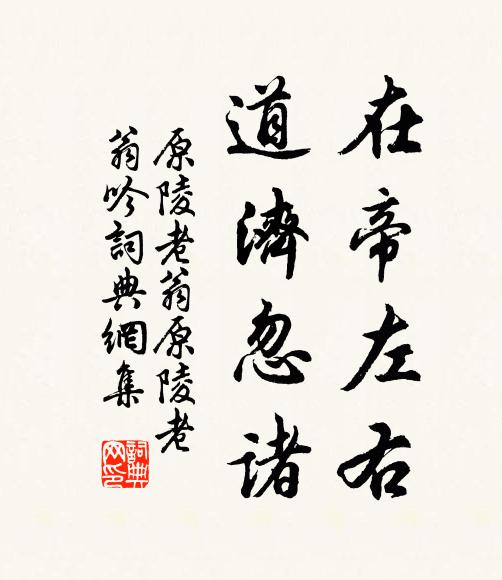 在帝左右
道濟忽諸
原陵老翁原陵老
翁吟詞典網集
詞典网印